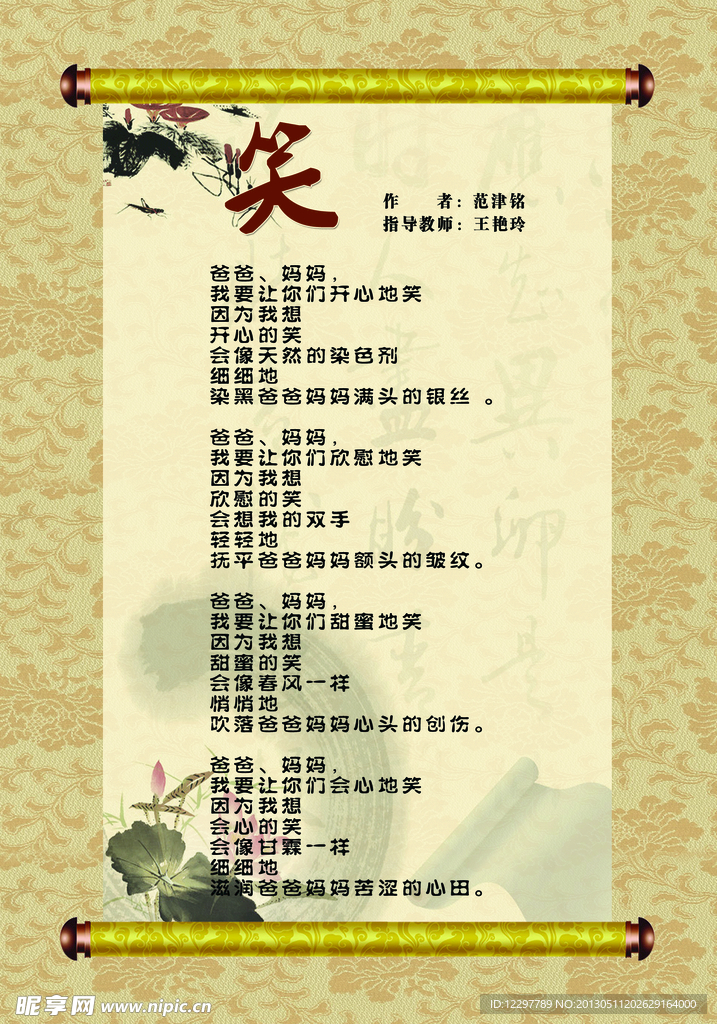 笑
作　　者：范津铭
指导教师：王艳玲
爸爸、妈妈，
我要让你们开心地笑
因为我想
开心的笑
会像天然的染色剂
细细地
染黑爸爸妈妈满头的银丝 。
爸爸、妈妈，
我要让你们欣慰地笑
因为我想
欣慰的笑
会想我的双手
轻轻地
抚平爸爸妈妈额头的皱纹。
爸爸、妈妈，
我要让你们甜蜜地笑
因为我想
甜蜜的笑
会像春风一样
悄悄地
吹落爸爸妈妈心头的创伤。
爸爸、妈妈，
我要让你们会心地笑
因为我想
会心的笑
会像甘霖一样
细细地
滋润爸爸妈妈苦涩的心田。
昵享网 www.nipic.cn
ID:12297789 NO:20130511202629164000